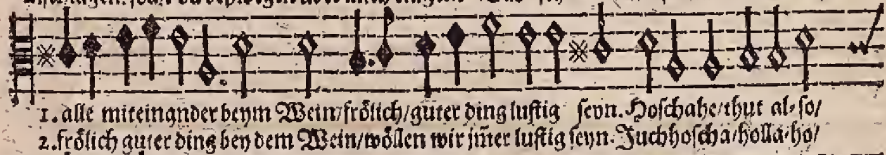 1. alle miteinander beym Wein/frölich/guter ding lustig seyn. Hoschahe/thut al-so/
2. frölich guter ding bey dem Wein/wöllen wir jm̃er lustig seyn. Juchhoscha/holla/ho/